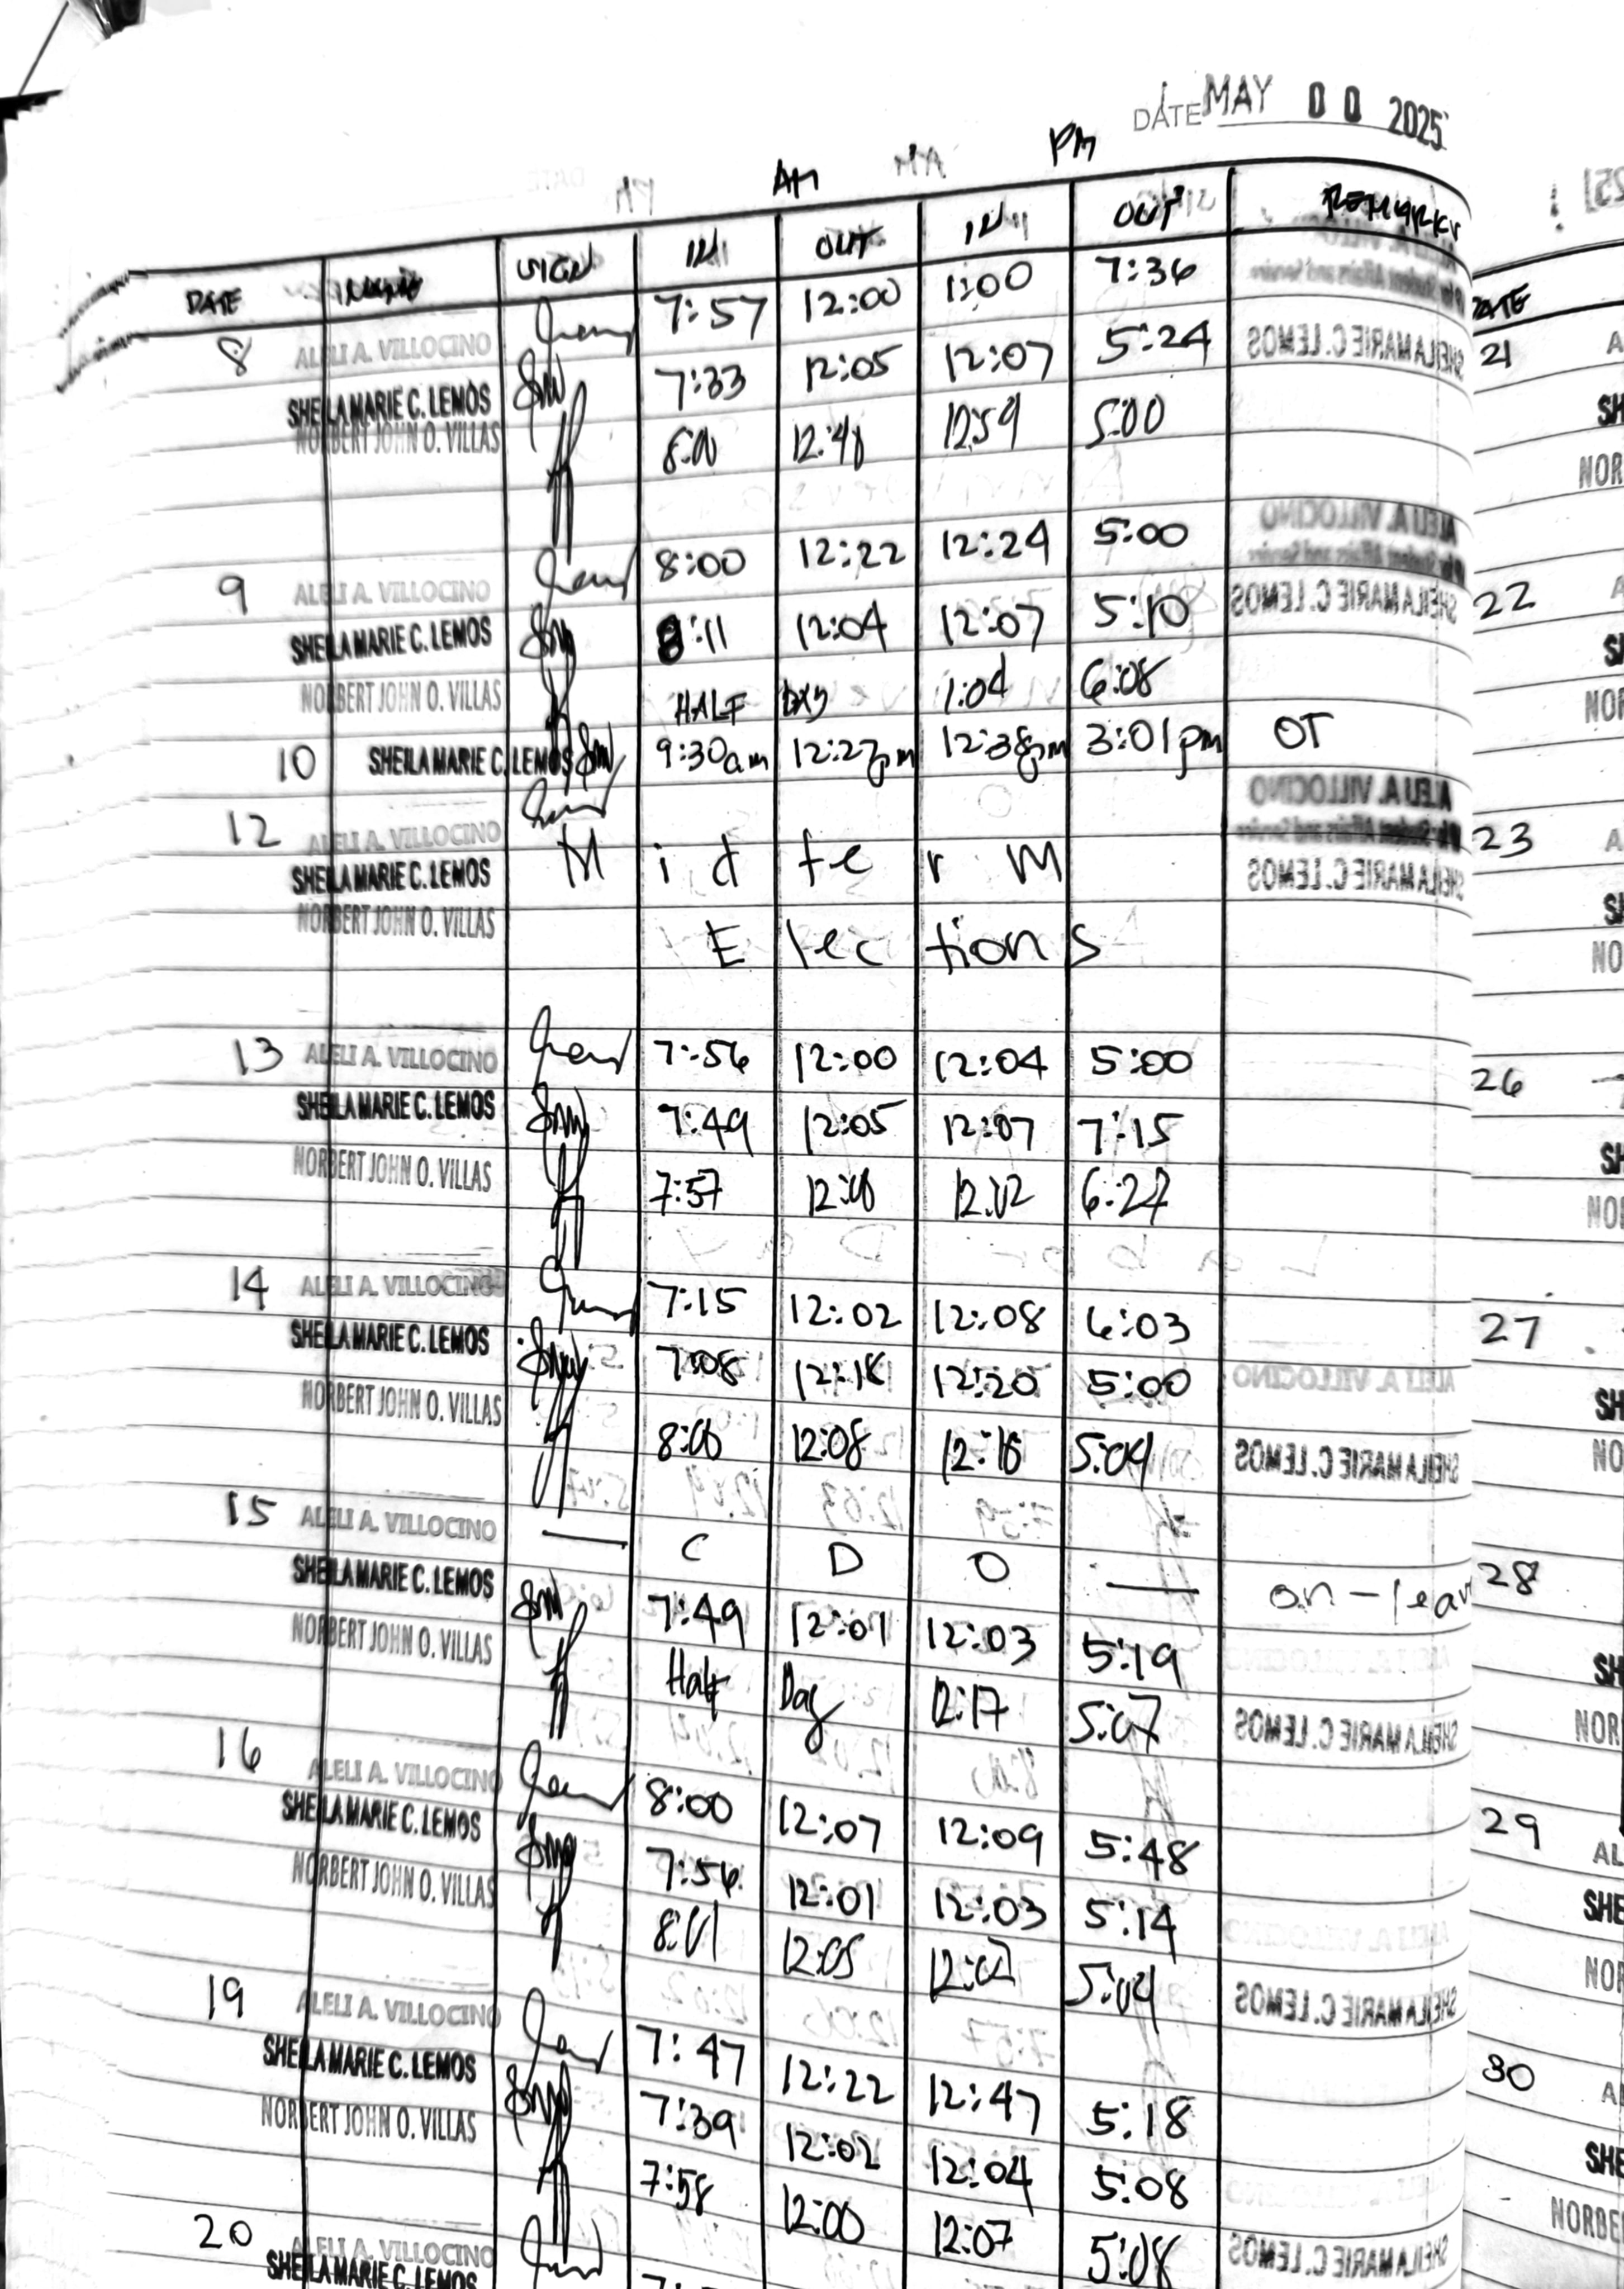 DATE MAY 00 2025
AM PM
DATE NAME SIGN IN OUT IN OUT REMARKS
8 ALELI A. VILLOCINO 7:57 12:00 1:00 7:36
SHEILA MARIE C. LEMOS 7:33 12:05 12:07 5:24
NORBERT JOHN O. VILLAS 8:00 12:48 12:59 5:00
9 ALELI A. VILLOCINO 8:00 12:22 12:24 5:00
SHEILA MARIE C. LEMOS 8:11 12:04 12:07 5:10
NORBERT JOHN O. VILLAS HALF DAY 1:04 6:08
10 SHEILA MARIE C. LEMOS 9:30am 12:27pm 12:38pm 3:01pm OT
12 ALELI A. VILLOCINO
SHEILA MARIE C. LEMOS Midterm
NORBERT JOHN O. VILLAS Elections
13 ALELI A. VILLOCINO 7:56 12:00 12:04 5:00
SHEILA MARIE C. LEMOS 7:49 12:05 12:07 7:15
NORBERT JOHN O. VILLAS 7:57 12:02 6:27
14 ALELI A. VILLOCINO 7:15 12:02 12:08 6:03
SHEILA MARIE C. LEMOS 7:08 12:18 12:20 5:00
NORBERT JOHN O. VILLAS 8:00 12:08 5:04
15 ALELI A. VILLOCINO — C D O — on-leav
SHEILA MARIE C. LEMOS 7:49 12:01 12:03 5:19
NORBERT JOHN O. VILLAS Half Day 12:17 5:07
16 ALELI A. VILLOCINO 8:00 12:07 12:09 5:48
SHEILA MARIE C. LEMOS 7:56 12:01 12:03 5:14
NORBERT JOHN O. VILLAS 8:01 12:05 5:04
19 ALELI A. VILLOCINO 7:47 12:22 12:47 5:18
SHEILA MARIE C. LEMOS 7:39 12:02 12:04 5:08
NORBERT JOHN O. VILLAS 7:58 12:00 12:07 5:08
20 ALELI A. VILLOCINO
SHEILA MARIE C. LEMOS
DATE
21 A
SH
NOR
22 A
SH
NOR
23 A
SH
NO
26
SH
NO
27
SH
NO
28
SH
NOR
29 AL
SHE
NOR
30 A
SHE
NORBE